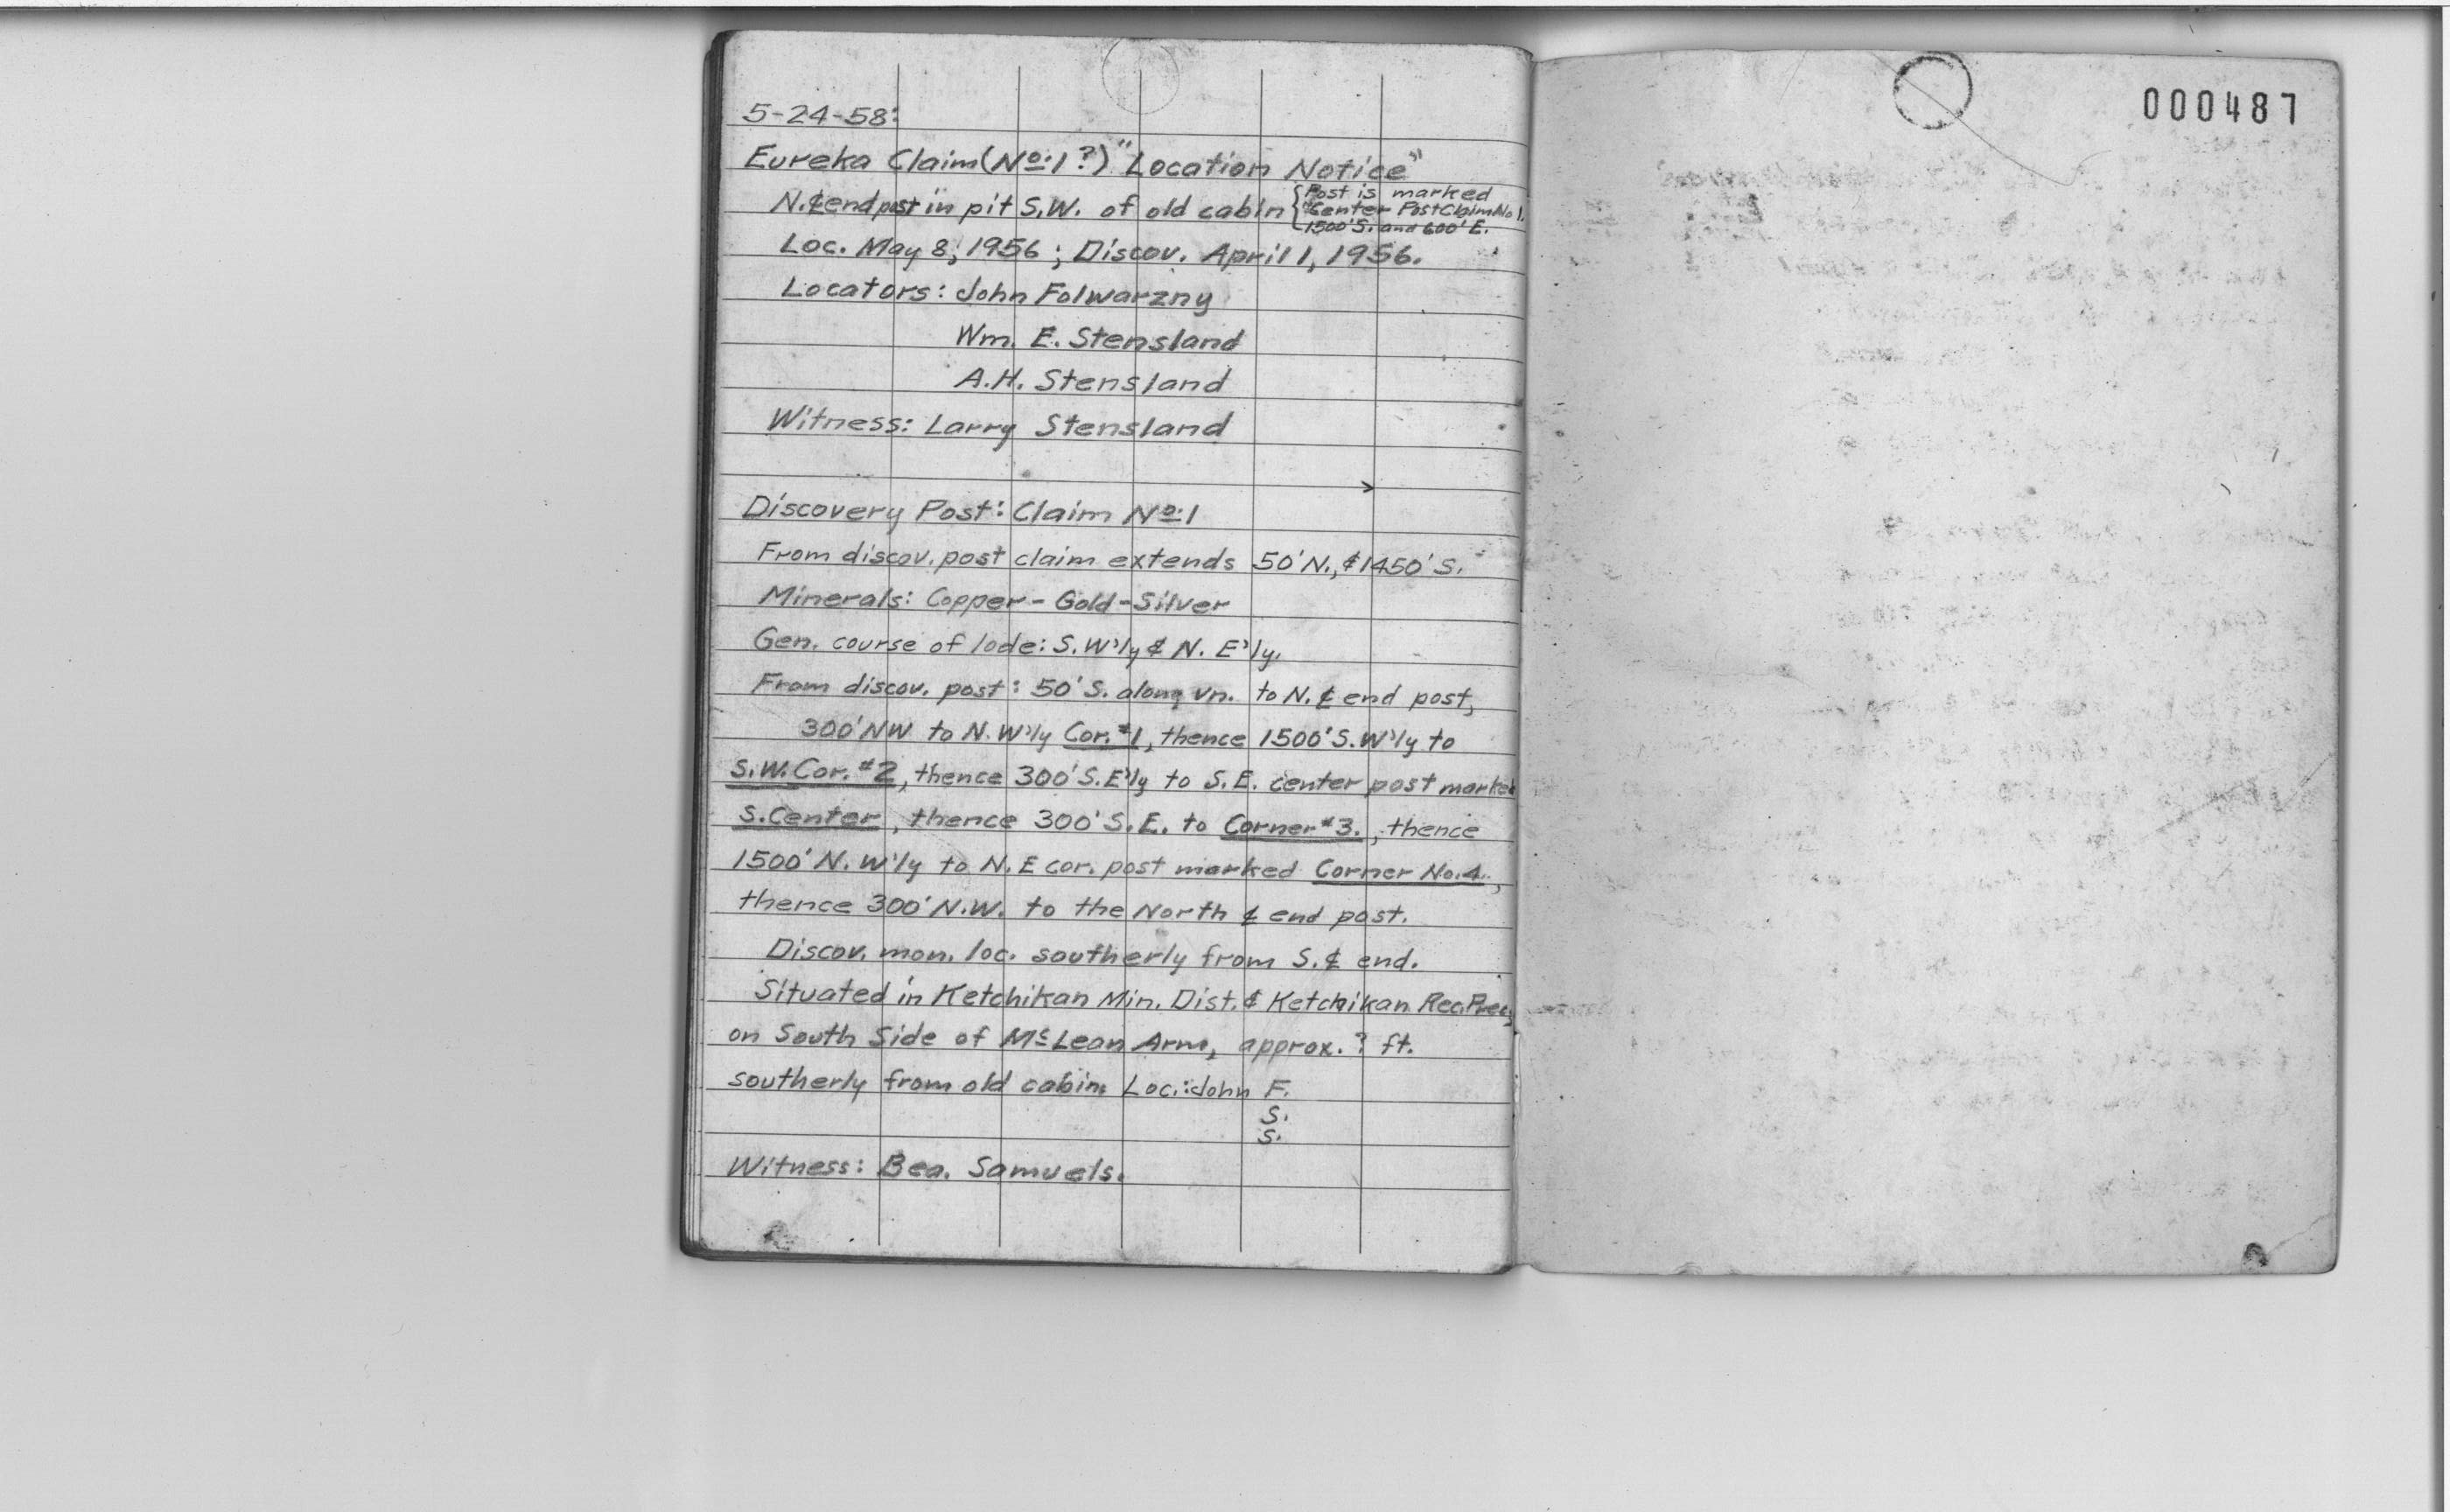 5-24-58:
Eureka Claim (No. 1?) "Location Notice"
N. ℄ end post in pit S.W. of old cabin {Post is marked
"Center Post Claim No 1.
1500' S. and 600' E.
Loc. May 8, 1956; Discov. April 1, 1956.
Locators: John Folwarzny
Wm. E. Stensland
A.H. Stensland
Witness: Larry Stensland
Discovery Post: Claim No. 1
From discov. post claim extends 50' N., & 1450' S.
Minerals: Copper - Gold - Silver
Gen. course of lode: S.W'ly & N. E'ly.
From discov. post: 50' S. along vn. to N. ℄ end post,
300' NW to N.W'ly Cor. #1, thence 1500' S.W'ly to
S.W. Cor. #2, thence 300' S.E'ly to S.E. center post marked
S. Center, thence 300' S.E. to Corner #3., thence
1500' N. W'ly to N. E cor. post marked Corner No. 4.,
thence 300' N.W. to the North ℄ end post.
Discov. mon. loc. southerly from S. ℄ end.
Situated in Ketchikan Min. Dist. & Ketchikan Rec. Prec.,
on South Side of McLean Arm, approx. ? ft.
southerly from old cabin. Loc.: John F.
S.
S.
Witness: Bea. Samuels.
000487